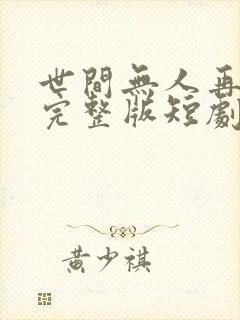 世間無人再
完整版短劇
黃少祺